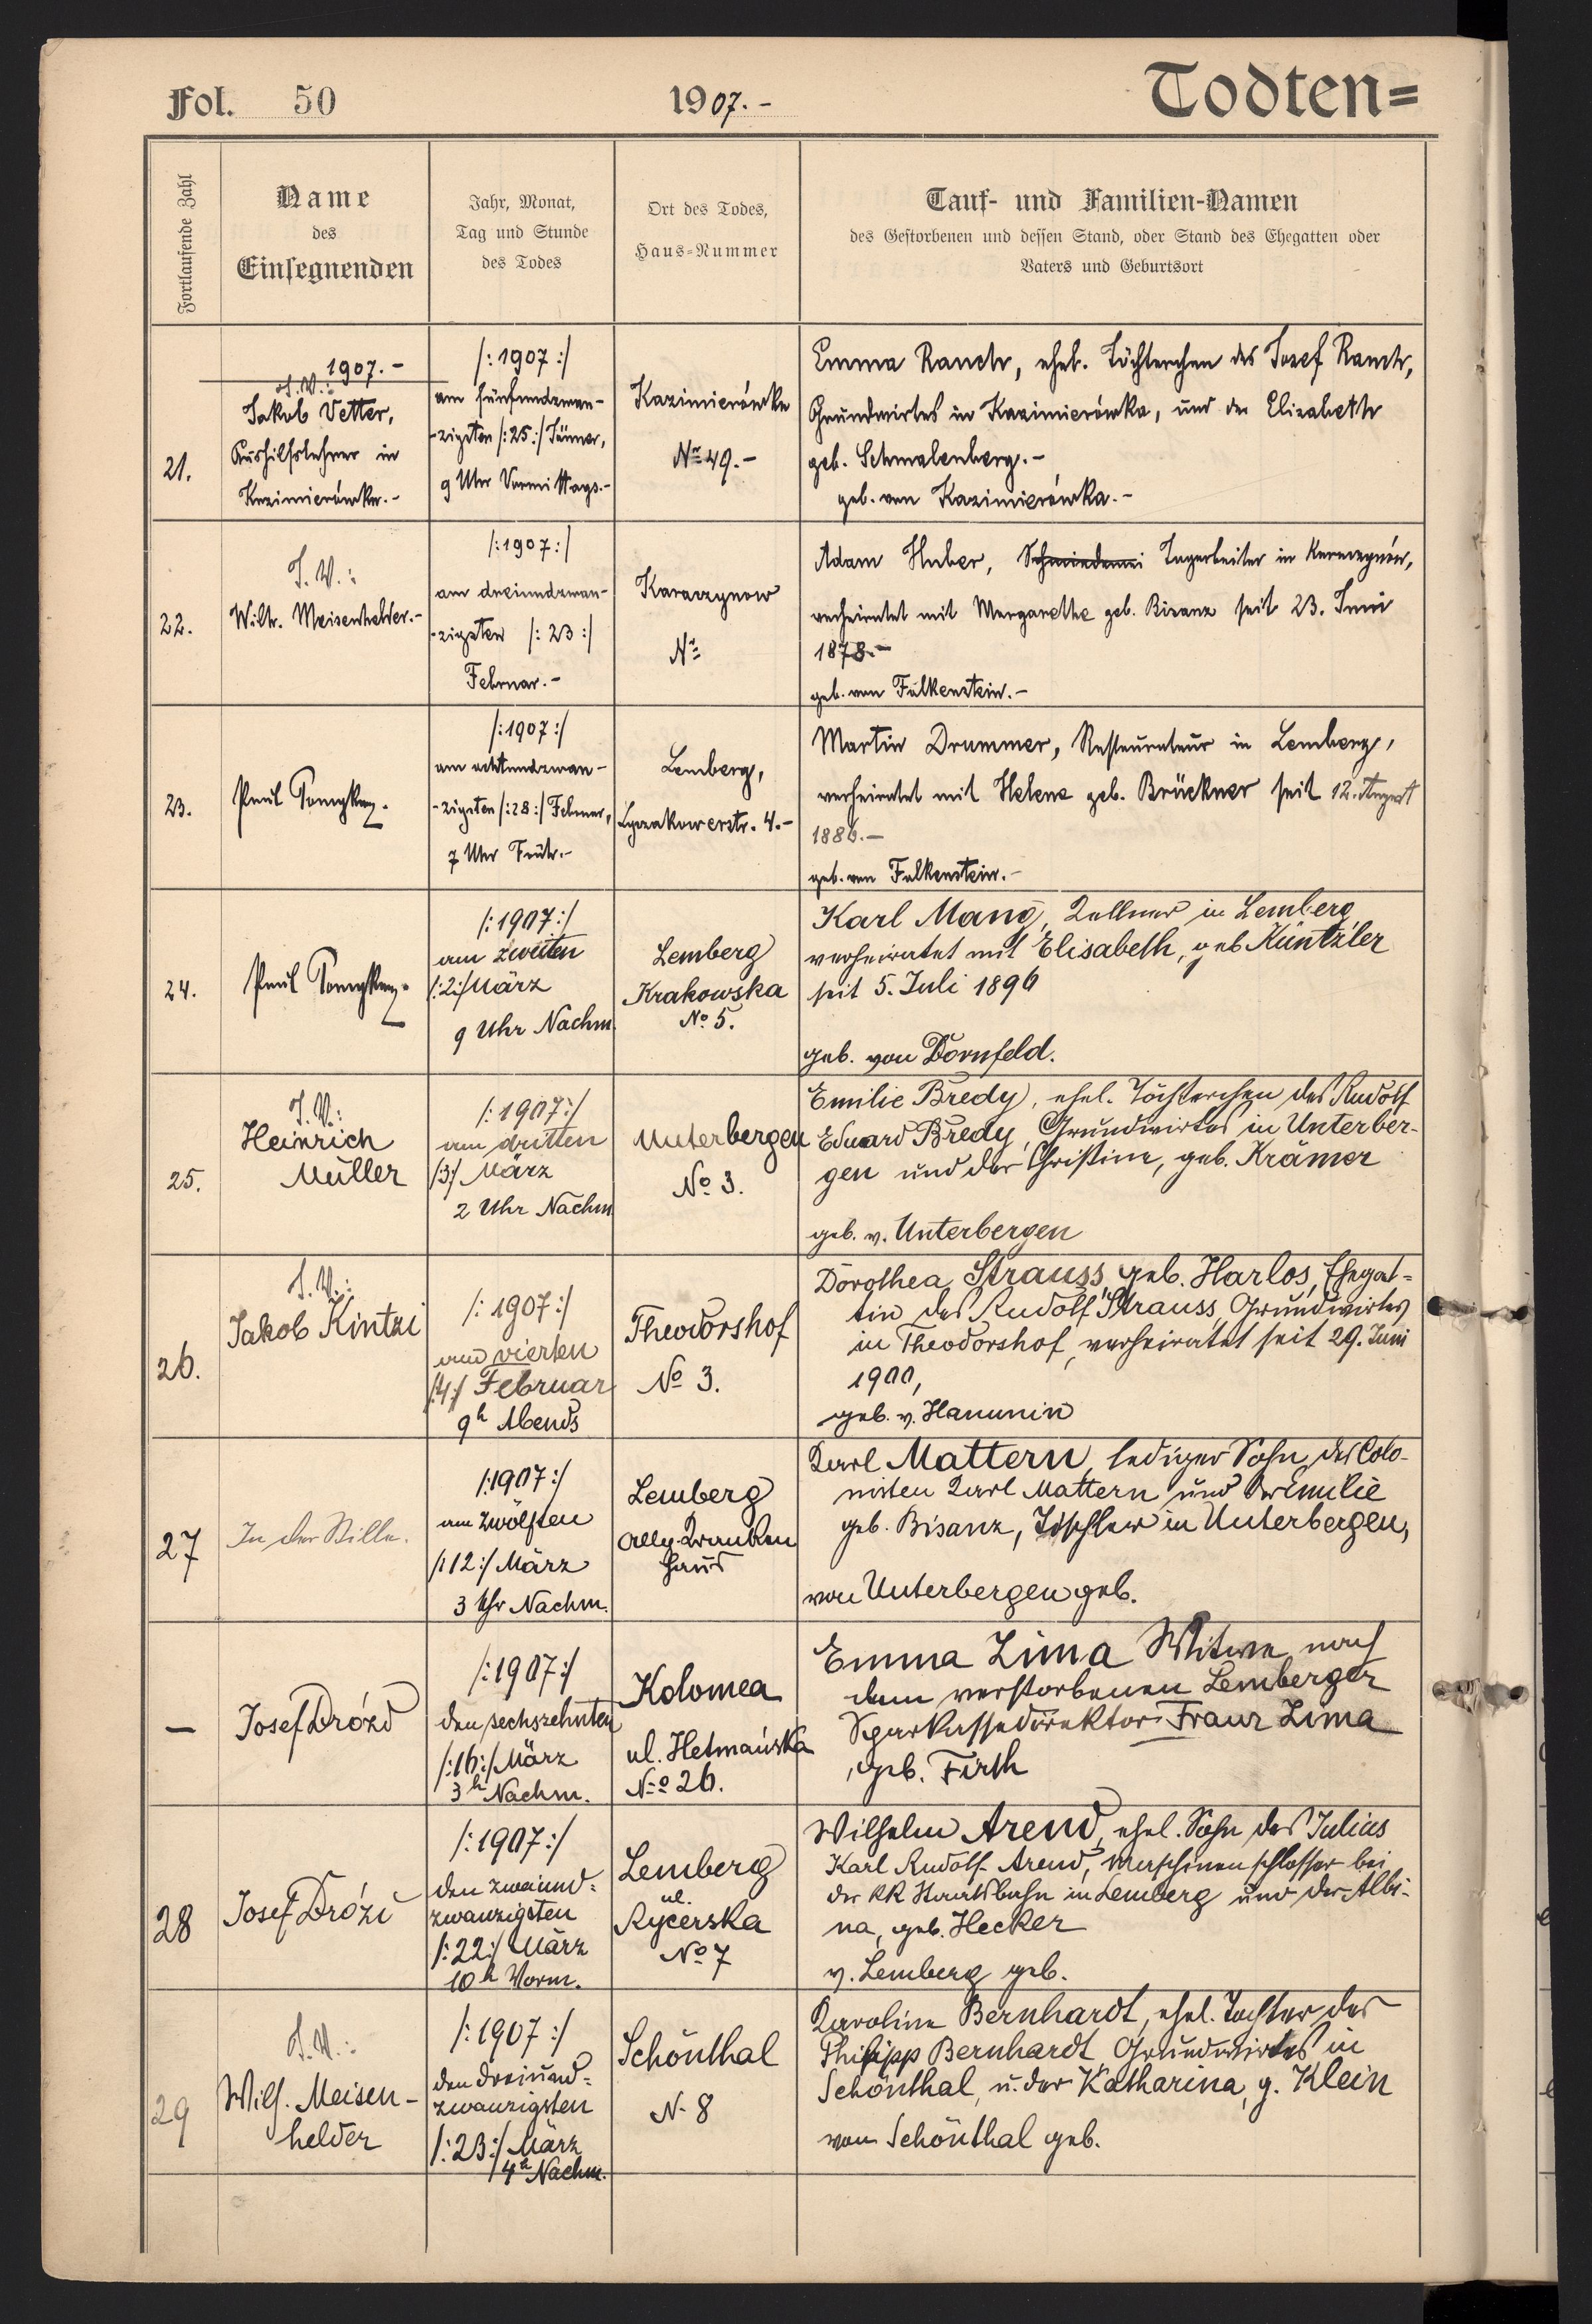 Fol. 50
1907.-
Todten=
Fortlaufende Zahl
Name
des
Einsegnenden
Jahr, Monat,
Tag und Stunde
des Todes
Ort des Todes,
Haus=Nummer
Tauf- und Familien-Namen
des Gestorbenen und dessen Stand, oder Stand des Ehegatten oder
Vaters und Geburtsort
21.
1907.-
I. V.:
Jakob Vetter,
Aushilfslehrer in
Kazimierówka.-
/:1907:/
am fünfundzwan-
-zigsten /:25:/ Jänner,
9 Uhr Vormittags.-
Kazimierówka
Nr. 49.-
Emma Rauch, ehel. Töchterchen des Josef Rauch,
Grundwirtes in Kazimierówka, und der Elizabeth
geb. Schmalenberg.-
geb. von Kazimierówka.-
22.
I. V.:
Wilh. Meisenhelder.-
/:1907:/
am dreiundzwan-
-zigsten /:23:/
Februar.-
Karaczynow
Nr.
Adam Huber, Tagarbeiter in Karaczynów,
verheiratet mit Margarethe geb. Bisanz seit 23. Juni
1878.-
geb. von Falkenstein.-
23.
Paul
/:1907:/
am achtundzwan-
-zigsten /:28:/ Februar,
7 Uhr Früh.-
Lemberg,
Lyczakowerstr. 4.-
Martin Drummer, Restaurateur in Lemberg,
verheiratet mit Helene geb. Brückner seit 12. August
1886.-
geb. von Falkenstein.-
24.
Paul
/:1907:/
am zweiten
/:2:/ März
9 Uhr Nachm.
Lemberg
Krakowska
No 5.
Karl Mang, Kellner in Lemberg
verheiratet mit Elisabeth, geb Küntzler
seit 5. Juli 1896
geb. von Dornfeld.
25.
I. V.:
Heinrich
Müller
/:1907:/
am dritten
/3/ März
2 Uhr Nachm
Unterbergen
No 3.
Emilie Bredy, ehel. Töchterchen des Rudolf
Eduard Bredy, Grundwirtes in Unterber-
gen und der Christine, geb. Krämer
geb. v. Unterbergen
26.
I. V.:
Jakob Kintzi
/:1907:/
am vierten
/:4:/ Februar
9h Abends
Theodorshof
No 3.
Dorothea Strauss, geb. Harlos, Ehegat=
tin des Rudolf Strauss, Grundwirtes
in Theodorshof, verheiratet seit 29. Juni
1900,
geb. v. Hanunin
27
In der Stille.
/:1907:/
am zwölften
/:12:/ März
3 Uhr Nachm.
Lemberg
Allg. Kranken
haus
Karl Mattern, lediger Sohn des Colo-
nisten Karl Mattern und der Emilie
geb. Bisanz, Tischler in Unterbergen,
von Unterbergen geb.
—
Josef Drózd
/:1907:/
den sechszehnten
/:16:/ März
3h Nachm.
Kolomea
ul. Hetmańska
No 26.
Emma Zima Witwe nach
dem verstorbenen Lemberger
Sparkassedirektor Franz Zima
geb. Firth
28
Josef Drózd
/:1907:/
den zweiund=
zwanzigsten
/:22:/ März
10h Vorm.
Lemberg
ul.
Rycerska
No 7
Wilhelm Arend, ehel. Sohn des Julius
Karl Rudolf Arend, Maschinenschlosser bei
der KK Staatsbahn in Lemberg und der Albi-
na, geb. Hecker
v. Lemberg geb.
29
I. V.:
Wilh. Meisen-
helder
/:1907:/
den dreiund=
zwanzigsten
/:23:/ März
4h Nachm.
Schönthal
N- 8
Karoline Bernhardt, ehel. Tochter des
Philipp Bernhardt, Grundwirtes in
Schönthal, u. der Katharina, g. Klein
von Schönthal geb.